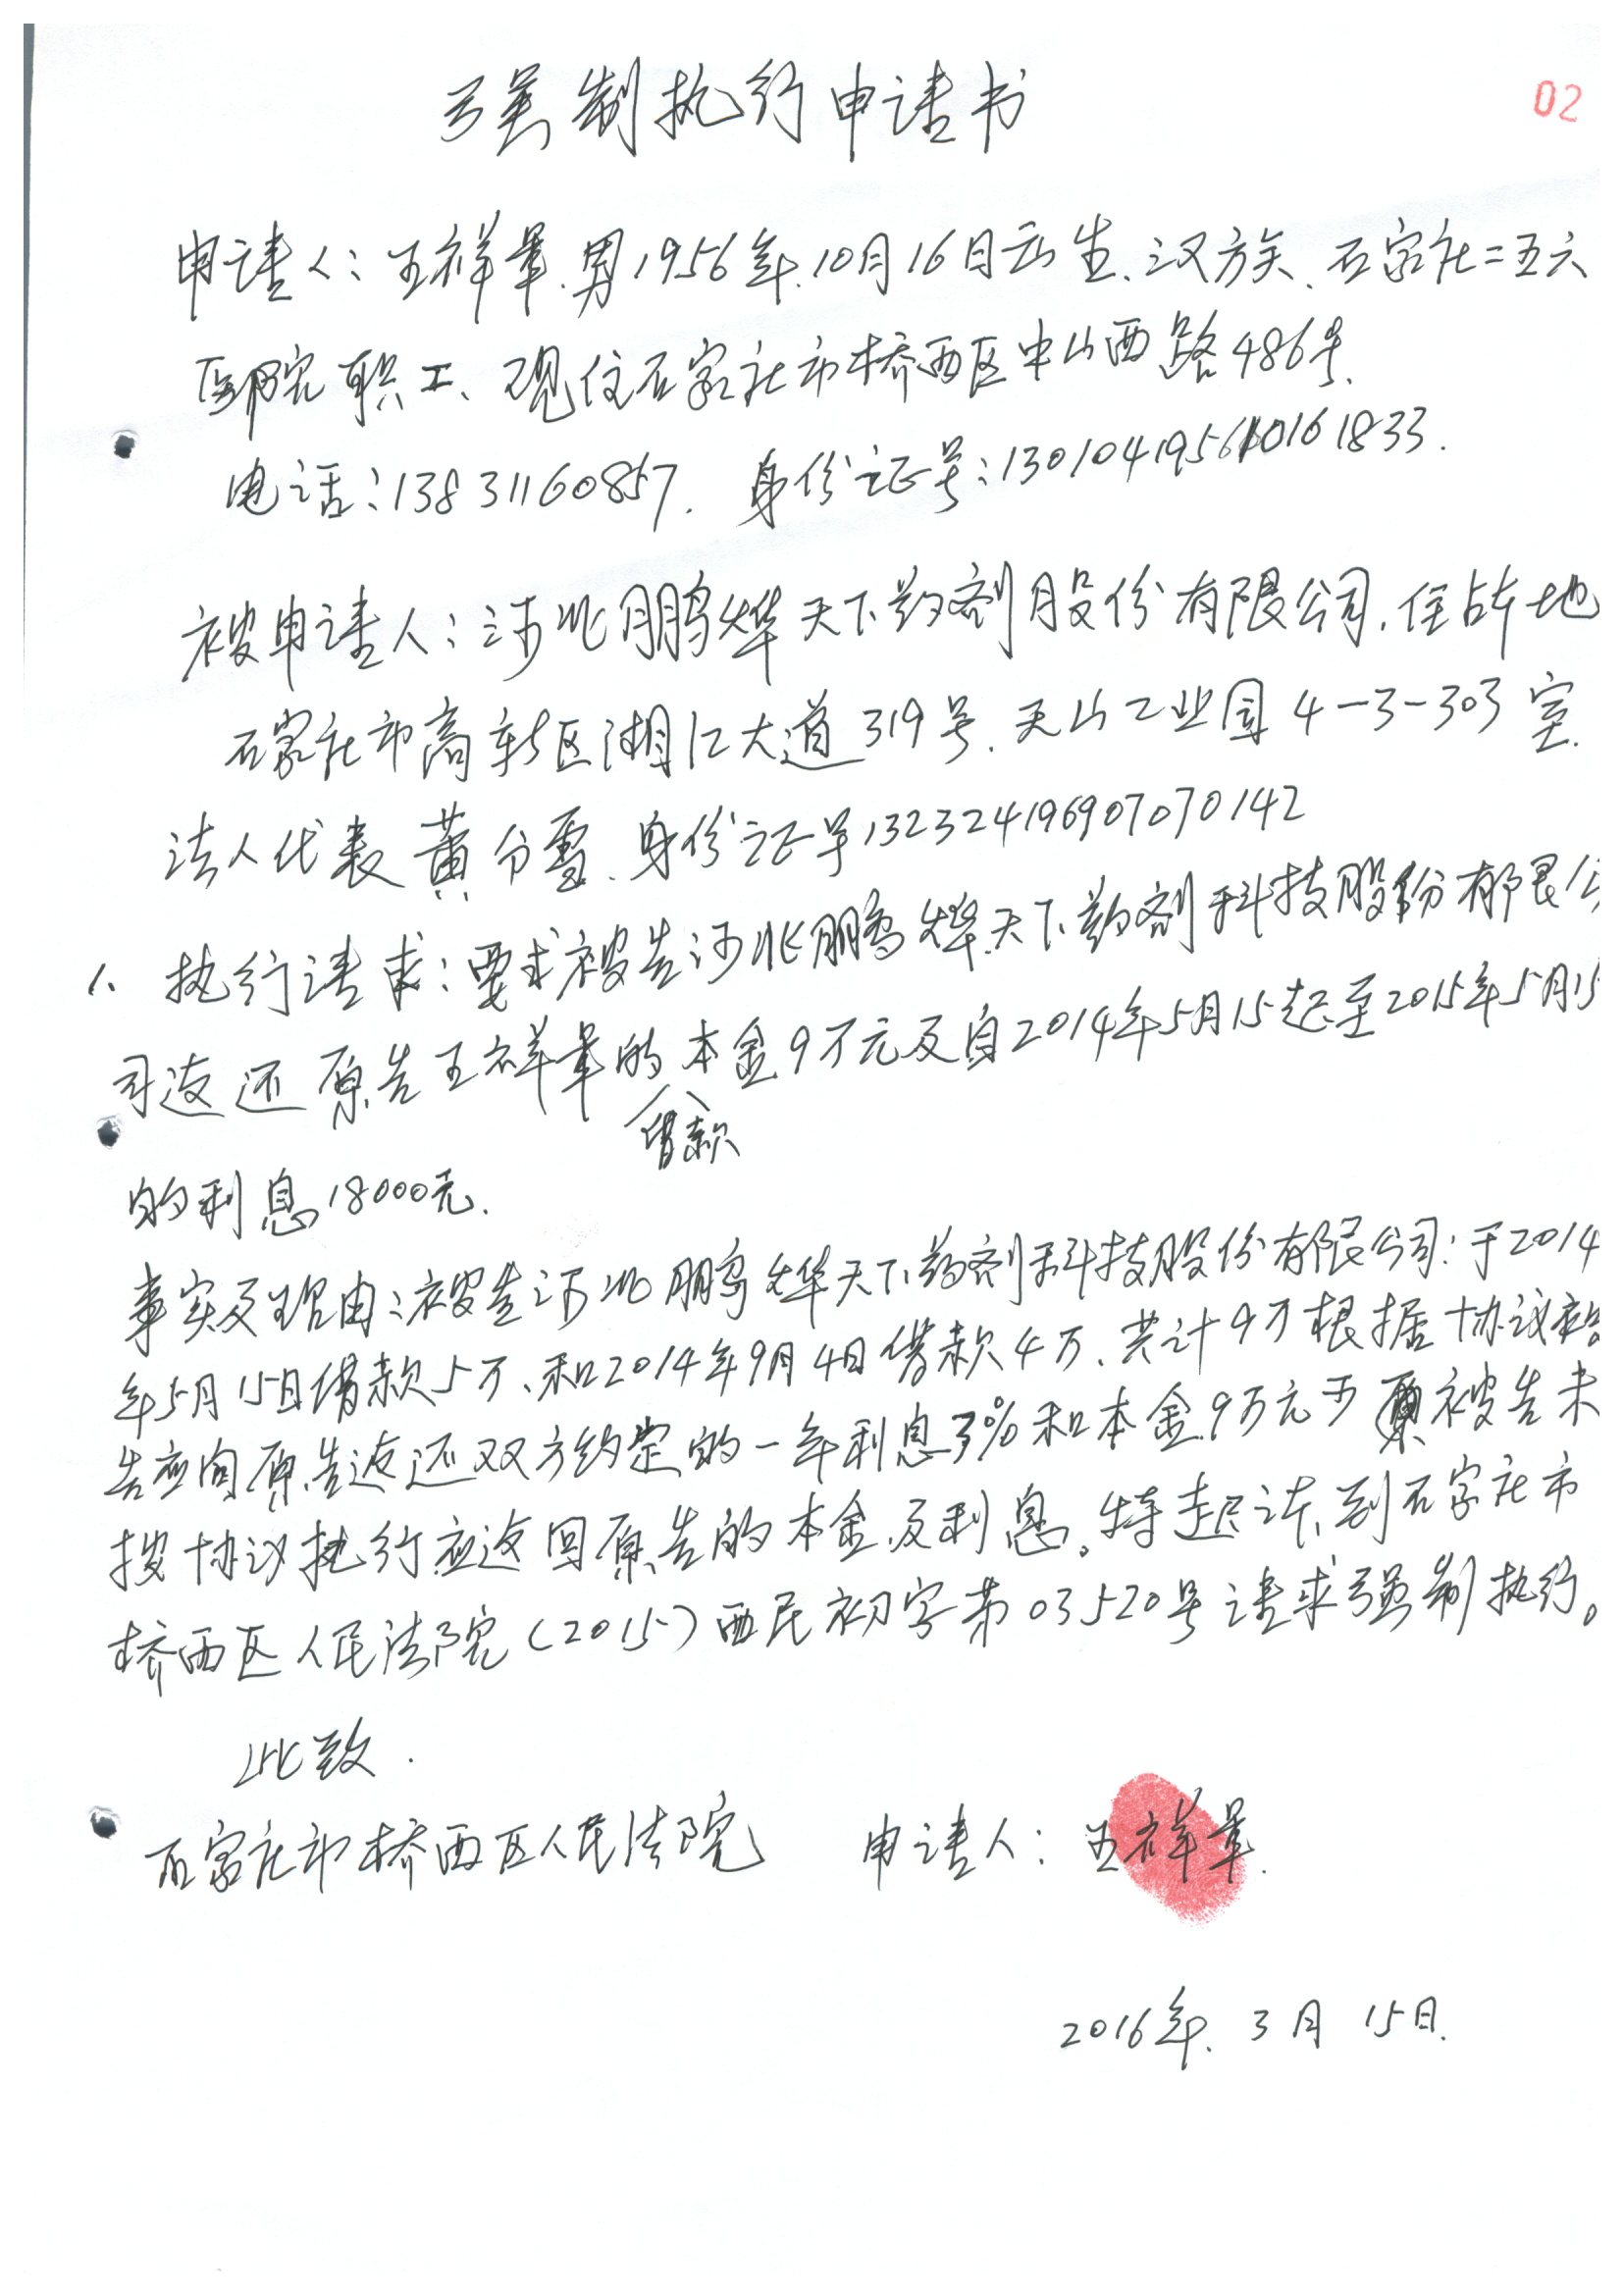 强制执行申请书
02
申请人：王祥军.男1956年.10月16日出生、汉族、石家庄二五六
医院职工、现住石家庄市桥西区中山西路486号.
电话：13831160857. 身份证号：130104195610161833.
被申请人：河北鹏烨天下药剂股份有限公司.住所地
石家庄市高新区湘江大道319号.天山工业园4-3-303室.
法人代表黄分雪.身份证号132324196907070142
1、执行请求：要求被告河北鹏烨天下药剂科技股份有限公
司返还原告王祥军的本金9万元及自2014年5月15起至2015年5月15
借款
的利息18000元.
事实及理由：被告河北鹏烨天下药剂科技股份有限公司：于2014
年5月15日借款5万、和2014年9月4日借款4万、共计9万根据协议被
告应向原告返还双方约定的一年利息3%和本金9万元于被告未
按协议执行应返回原告的本金及利息。特起诉到石家庄市
桥西区人民法院（2015）西民初字第03520号请求强制执行。
此致.
石家庄市桥西区人民法院 申请人：王祥军.
2016年.3月15日.